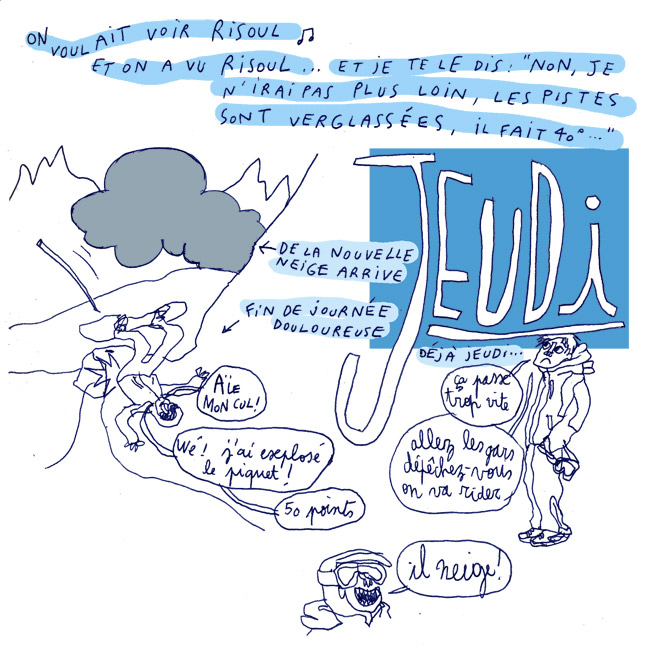 ON VOULAIT VOIR RISOUL ♫
ET ON A VU RISOUL... ET JE TE LE DIS : "NON, JE
N'IRAI PAS PLUS LOIN, LES PISTES
SONT VERGLASSÉES, IL FAIT 40°..."
JEUDi
← DE LA NOUVELLE
NEIGE ARRIVE
FIN DE JOURNÉE
DOULOUREUSE
DÉJÀ JEUDI...
ça passe
trop vite
AÏE
MON CUL!
allez les gars
dépêchez-vous
on va rider
Wé! j'ai explosé
le piquet!
50 points
il neige!